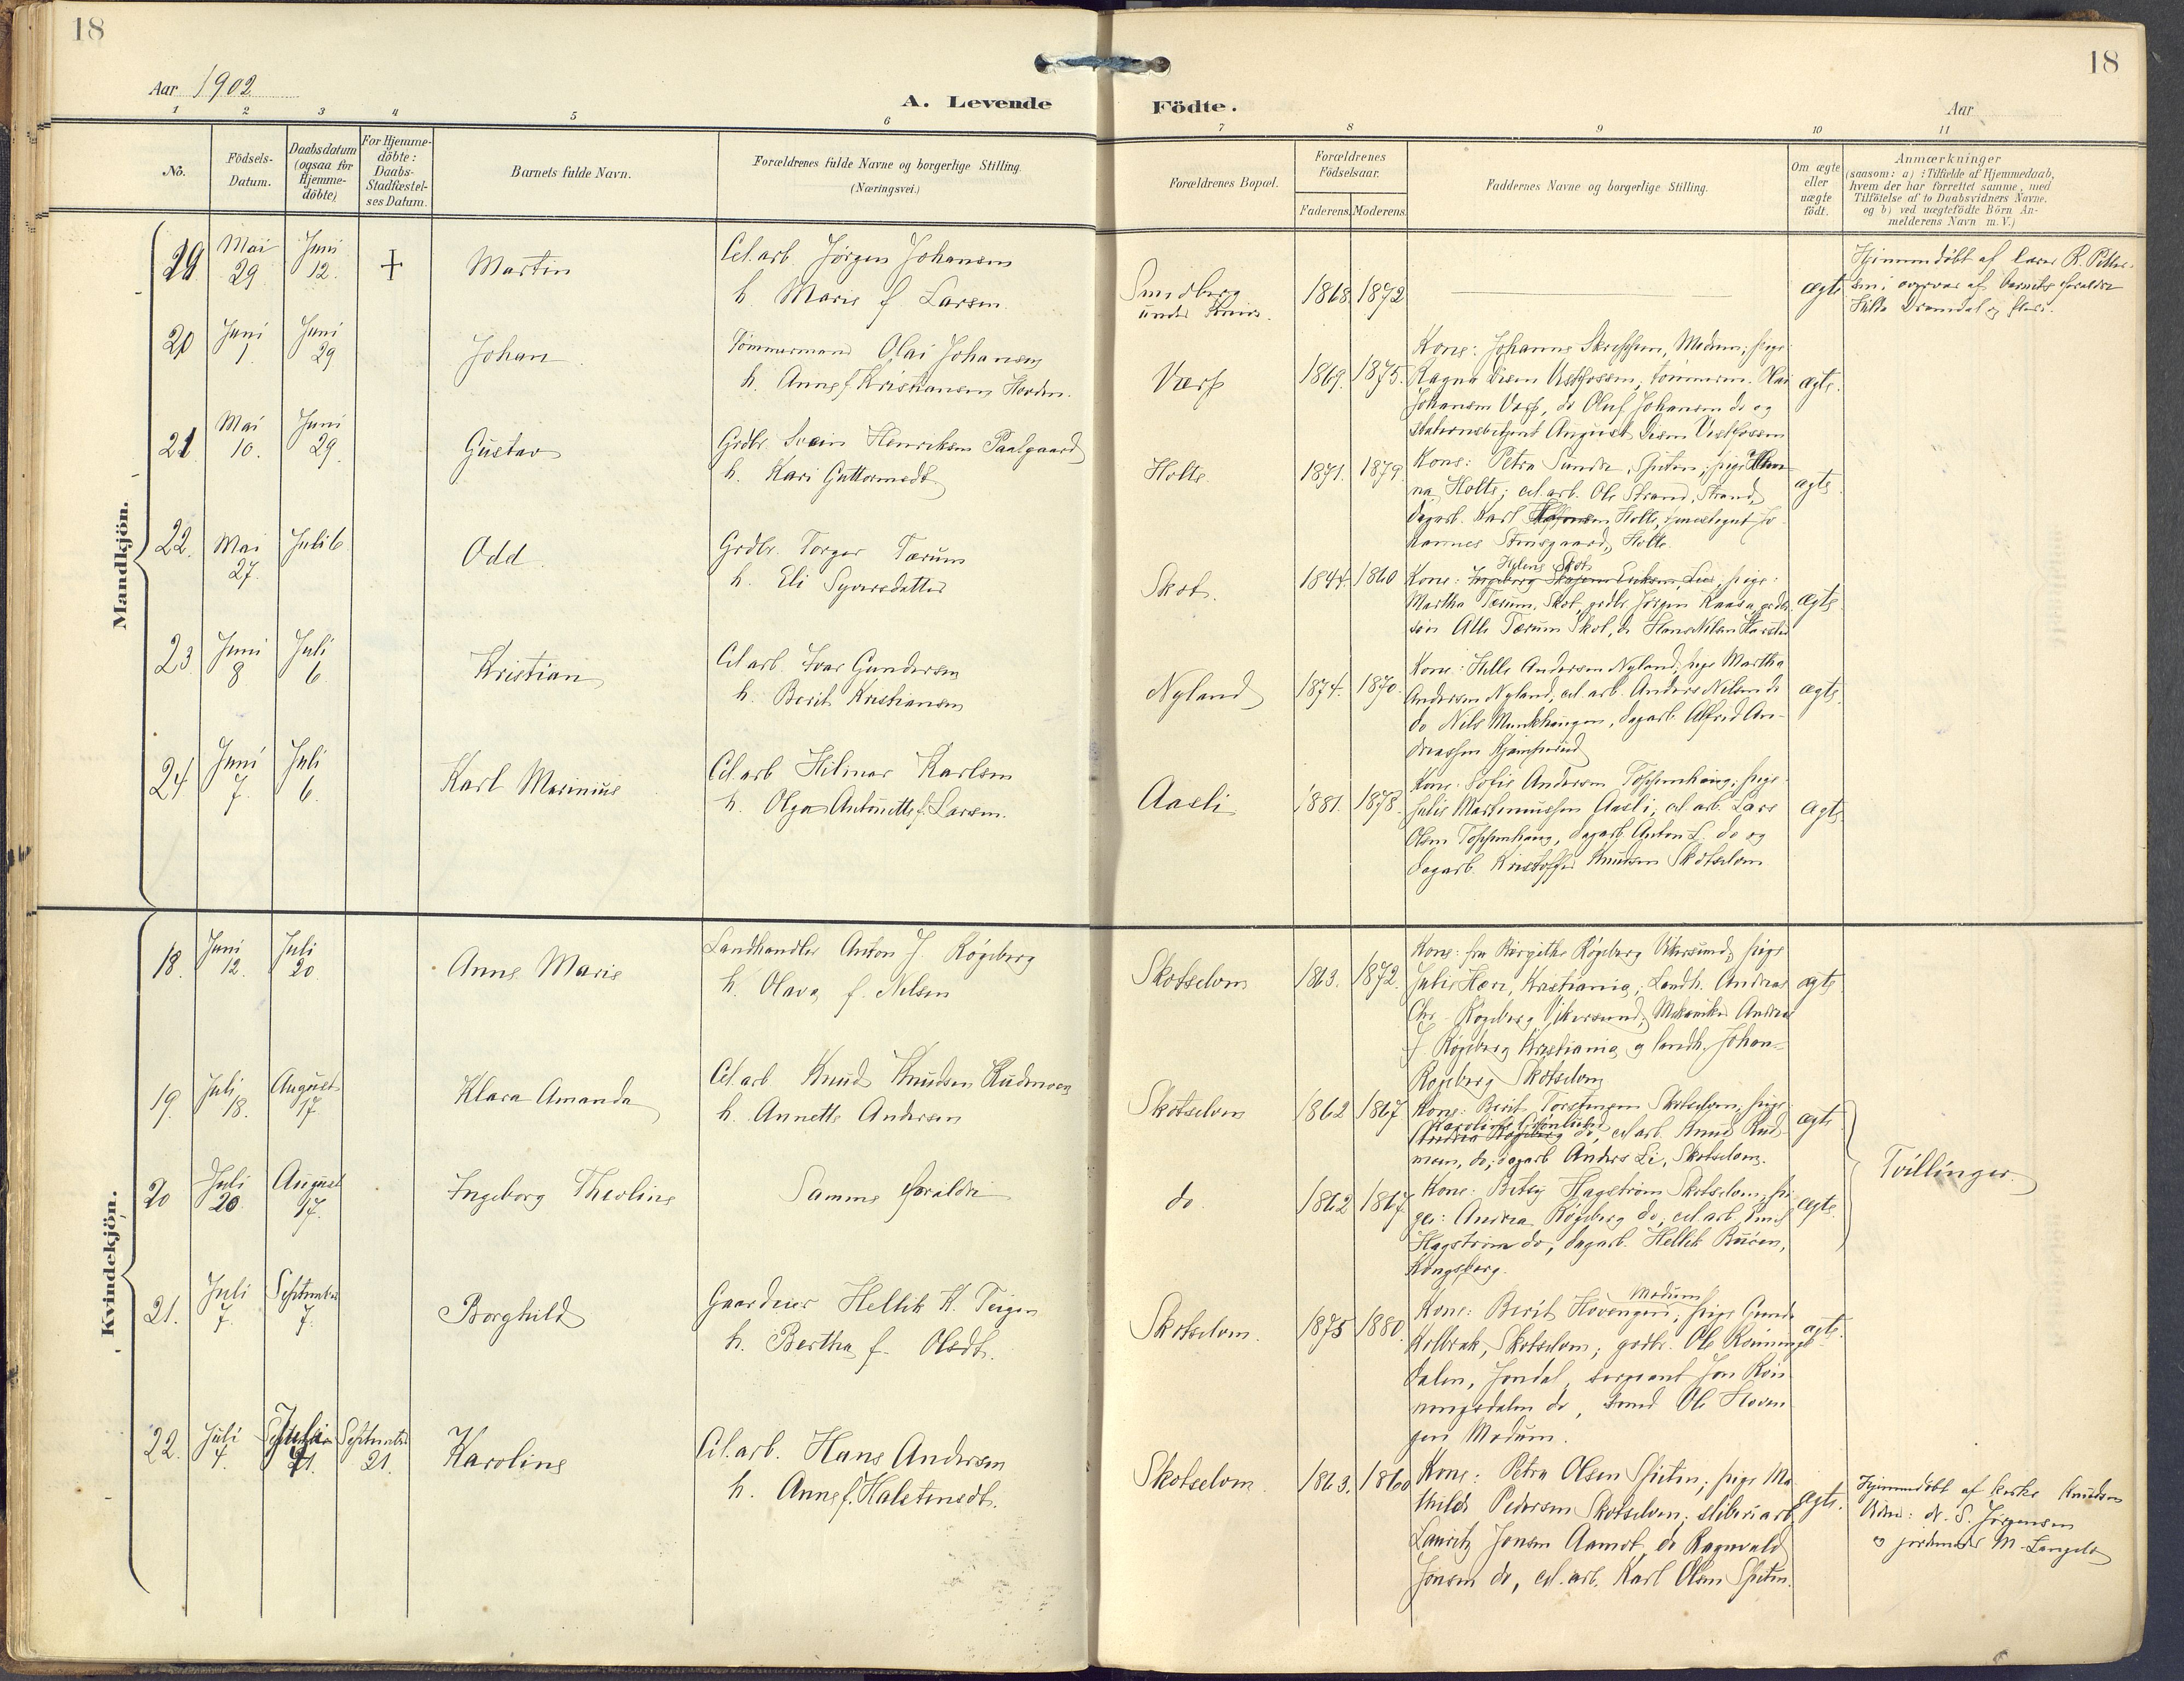 18
18
Aar 1902
A. Levende
Födte.
Aar
1 2 3 4 5 6 7 8 9 10 11
No.
Födsels-
Datum.
Daabsdatum
(ogsaa for
Hjemme-
döbte)
For Hjemme-
döbte:
Daabs-
Stadfæstel-
ses Datum.
Barnets fulde Navn.
Forældrenes fulde Navne og borgerlige Stilling.
(Næringsvei.)
Forældrenes Bopæl.
Forældrenes
Födselsaar.
Faderens. Moderens.
Faddernes Navne og borgerlige Stilling.
Om ægte
eller
uægte
födt.
Anmærkninger
(saasom: a) : Tilfælde af Hjemmedaab,
hvem der har forrettet samme, med
Tilföielse af to Daabsvidners Navne,
og b) ved uægtefödte Börn An-
melderens Navn m. V.)
Mandkjön.
19 Mai 29 Juni 12. + Martin
Cel.arb. Jörgen Johansen
h. Marie f. Larsen
Sundberg
under
1868. 1872
ægte
Hjemmedöbt af lærer R. Petter-
sen i overvær af barnets forældre
20 Juni 1. Juni 29 Johan
Tömmermand Olai Johansen
h. Anne f. Kristiansen
Værp
1869. 1875.
Kone: Johanne
Johansen Værp, do Oluf Johansen do og
August
ægte.
21 Mai 10. Juni 29. Gustav
Grdbr. Svein Henriksen Paalgaard
h. Kari Guttormsdt
Holte
1871. 1879.
Kone: Petra
Holte; cel.arb. Ole Strand, Strand,
dagarb. Karl Holte,
Holte.
ægte
22. Mai 27. Juli 6 Odd.
Grdbr. Torger Tærum
h. Eli Syversdatter
Skot.
1844. 1860
Helene Skot
Kone: Eriksen, Lie, pige:
Martha Tærum, Skot, grdbr. Jörgen Kaasa, grdbr.
sön Atle Tærum Skot, do Hans Nilsen
ægte
23 Juni 8 Juli 6 Kristian
Cel.arb. Ivar Gundersen
h. Berit Kristiansen
Nyland
1874. 1870.
Kone: Helle Andersen Nyland, pige Martha
Andersen Nyland, cel.arb. Anders Nilsen do
do Nils Munkhaugen, dagarb. Alfred An-
dreassen
ægte.
24 Juni 7. Juli 6. Karl Marinius
Cel.arb. Hilmar Karlsen
h. Olga Antonette f. Larsen.
Aasli
1881. 1878.
Kone: Sofie Andersen Toppenhaug; pige
Julie Martinnussen Aasli, cel.arb. Lars
Olsen Toppenhaug, dagarb. Anton L. do og
dagarb. Kristoffer Knudsen Skotselven
ægte
Kvindekjön.
18. Juni 12. Juli 20. Anne Marie
Landhandler Anton J. Rögeberg
h. Olava f. Nilsen
Skotselven
1863. 1872.
Kone: fru Birgithe Rögeberg Vikersund, pige
Julie Kristiania, Landh. Andreas
Chr. Rögeberg Vikersund, Mekaniker Andreas
J. Rögeberg Kristiania og landh. Johan
Rögeberg Skotselven
ægte
19. Juli 18. August 17. Klara Amanda
Cel.arb. Knud Knudsen Rudmoen
h. Annette Andersen
Skotselven
1862 1867
Kone: Berit Torstensen Skotselven, pige
Karoline Grönlund
Andrea Rögeberg do, cel.arb. Knud Rud-
moen, do, dagarb. Anders Li, Skotselven.
ægte
Tvillinger.
20 Juli 20 August 17. Ingeborg Theoline
Samme forældre
do.
1862 1867.
Kone: Betsy Hagström Skotselven, pi-
ge: Andrea Rögeberg do, cel.arb. Emil
Hagström do, dagarb. Hellik
Kongsberg.
ægte.
21. Juli 7. September 7. Borghild
Gaardeier Hellik K. Teigen
h. Bertha f. Olsdt.
Skotselven.
1875 1880.
Modum
Kone: Berit Hovengen, pige Gunda
Kolbræk, Skotselven; grdbr. Ole Rönnings-
dalen, Jondal, sergeant Jon Rön-
ningsdalen do, smed Ole Hoven-
gen Modum.
ægte.
22. Juli 4. Juli September 21. Karoline
Cel.arb. Hans Andersen
h. Anne f. Halstensdt.
Skotselven.
1863. 1860
Kone: Petra Olsen Spiten; pige Ma-
thilde Pedersen Skotselven; sliberiarb.
Lauritz Jonsen Aamot, do Ragnvald
Jonsen do, cel.arb. Karl Olsen Spiten.
ægte.
Hjemmedöbt af Knudsen
Vidner: N. S. Jörgensen
og jordmoder M. Langeld